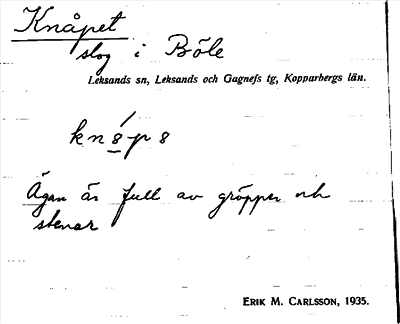 Knåpet
slog i Böle
Leksands sn, Leksands och Gagnefs tg, Kopparbergs län.
kn8p8
Ägan är full av gröpper och
stenar
ERIK M. CARLSSON, 1935.